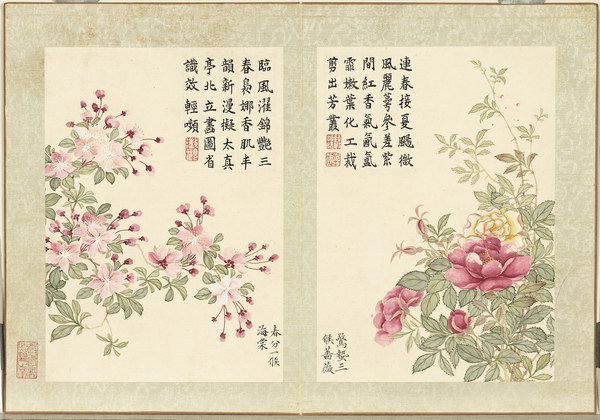 連春接夏颺微
風麗萼參差紫
間紅香氣氤氳
霏嫩葉化工裁
剪出芳叢
驚蟄三
候薔薇
臨風濯錦豔三
春裊娜香肌丰
韻新漫擬太真
亭北立畫圖省
識效輕嚬
春分一候
海棠